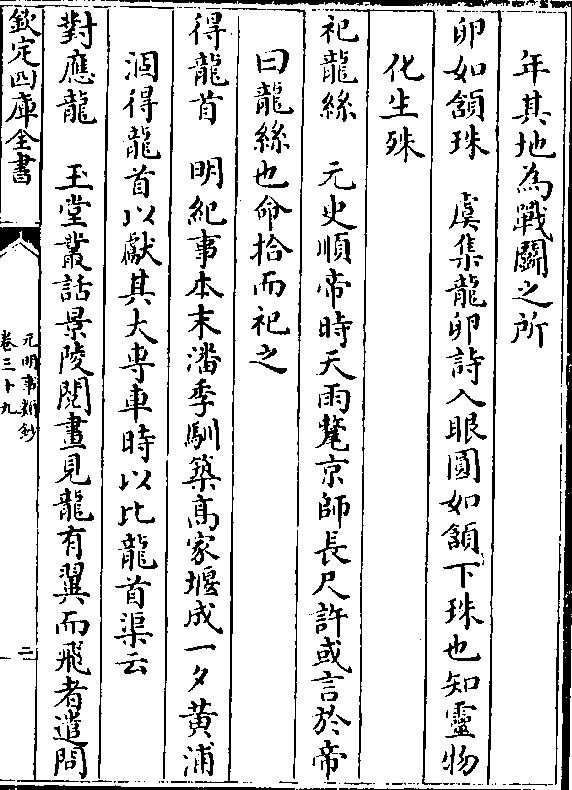 年其地為戰鬭之所
卵如頷珠　虞集龍卵詩入眼圓如頷下珠也知靈物
化生殊
祀龍絲　元史順帝時天雨氂京師長尺許或言於帝
曰龍絲也命拾而祀之
得龍首　明紀事本末潘季馴築髙家堰成一夕黄浦
涸得龍首以獻其大專車時以比龍首渠云
對應龍　玉堂叢話景陵閱畫見龍有翼而飛者遣問
欽定四庫全書
元明事類鈔
卷三十九
二